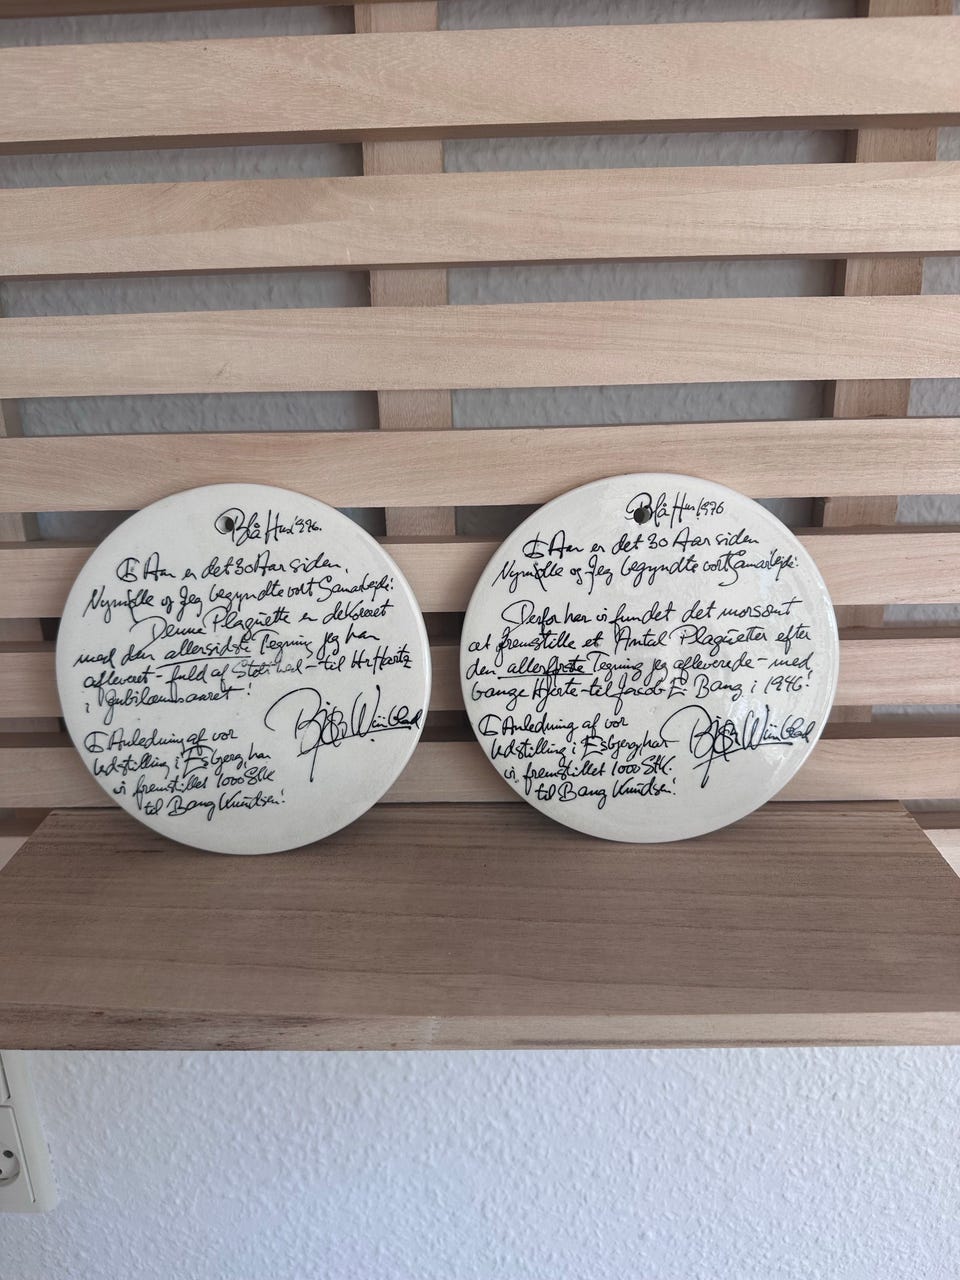 Blå Hus 1976.
I Aar er det 30 Aar siden,
Nymølle og Jeg begyndte vort Samarbejde!
Denne Plaquette er dekoreret
med den allersidste Tegning jeg har
afleveret - fuld af Stolthed - til Hr. Hartz
i Jubilæumsaaret!
Bjørn Wiinblad
I Anledning af vor
Udstilling i Esbjerg, har
vi fremstillet 1000 Stk
til Bang Knudsen!
Blå Hus 1976
I Aar er det 30 Aar siden
Nymølle og Jeg begyndte vort Samarbejde!
Derfor har vi fundet det morsomt
at fremstille et Antal Plaquetter efter
den allerførste Tegning jeg afleverede - med
bange Hjerte - til Jacob E. Bang i 1946!
Bjørn Wiinblad
I Anledning af vor
Udstilling i Esbjerg, har
vi fremstillet 1000 Stk.
til Bang Knudsen!